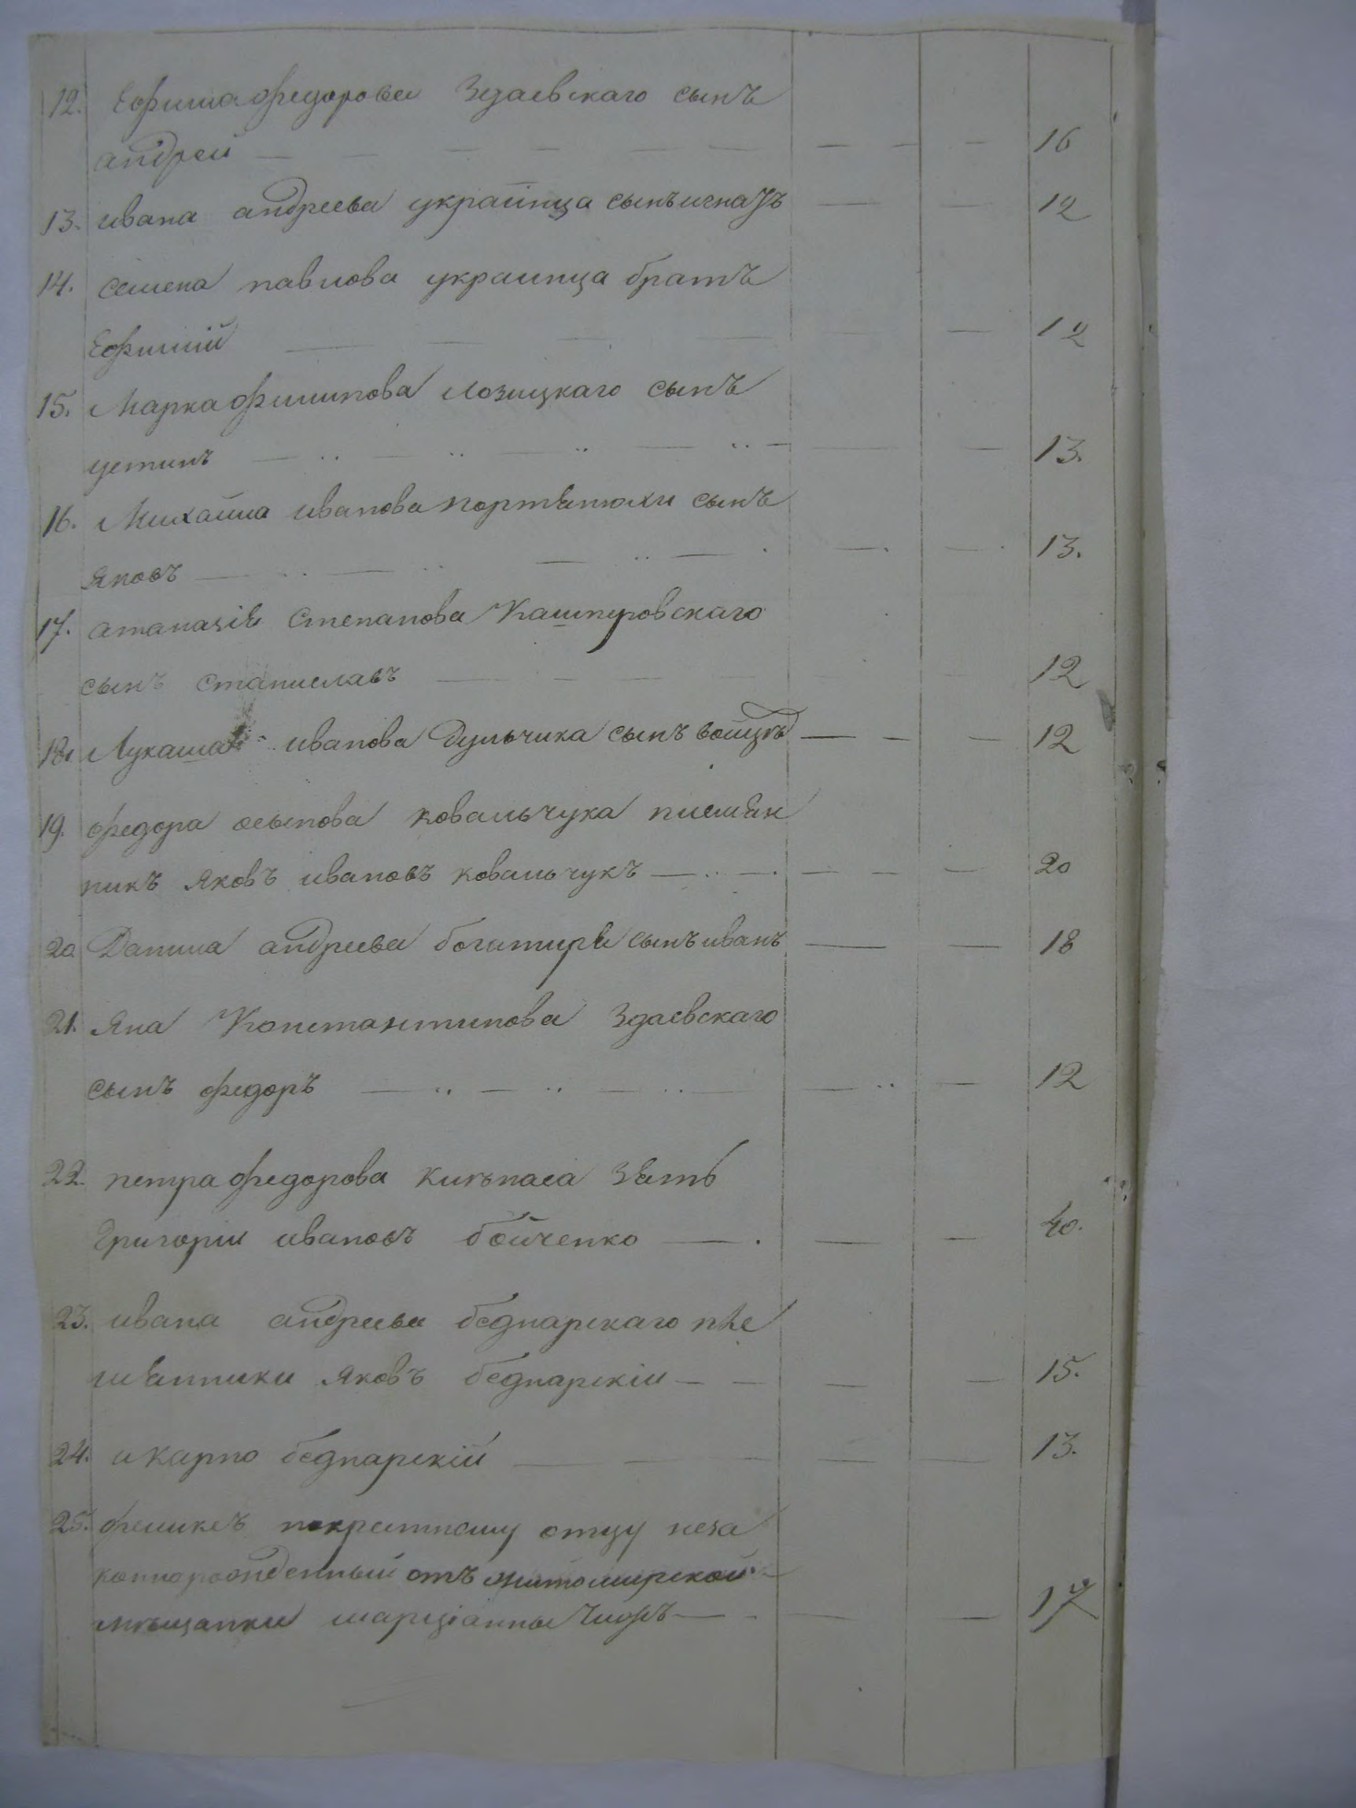 12. Ефима Федорова Здаевскаго сынъ
андрей — — — — — — — — 16
13. ивана андреева украинца сынъ игнатъ — — 12
14. семена павлова украинца братъ
Ефимій — — — — — — 12
15. Марка филипова лозицкаго сынъ
устинъ — — — — — 13.
16. Михайла иванова портянюхи сынъ
яковъ — — — — — 13.
17. атаназія степанова Кашперовскаго
сынъ станиславъ — — — — 12
18. Лукаша иванова Дульчика сынъ войцѣхъ — — — 12
19. федора осыпова ковальчука племян
никъ яковъ ивановъ ковальчукъ — — — — — 20
20. Данила андреева богатиря сынъ иванъ — — 18
21. яна Константинова Здаевскаго
сынъ федоръ — — — — — 12
22. петра федорова зять
григорій ивановъ бойченко — — — 40.
23. ивана андреева беднарскаго пле
мянники яковъ беднарскій — — — — 15.
24. и карпо беднарскій — — — — — 13.
25. феликсъ покрестному отцу неза
коннорожденный отъ житомирской
мѣщанки марціанны — — — 17